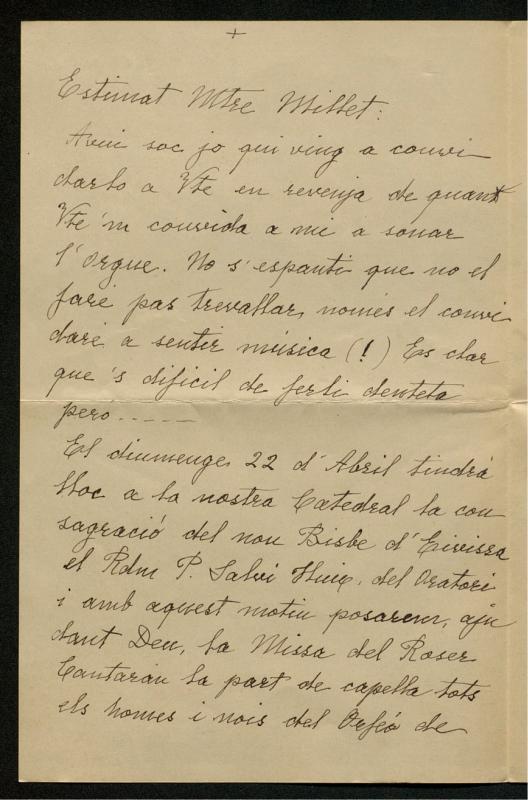 +
Estimat Mtre Millet:
Avui soc jo qui ving a convi
darlo a Vte en revenja de quant
Vte'm convida a mi a sonar
l'Orgue. No s'espanti que no el
faré pas trevallar, només el convi
daré a sentir música (!) Es clar
que 's dificil de ferli denteta
pero.....
El diumenge 22 d'Abril tindrá
lloc a la nostra Catedral la con
sagració del nou Bisbe d'Eivissa
el Rdm P. Salvi Huix, del Oratori
i amb aquest motiu posarem, aju
dant Deu, la Missa del Roser
Cantarán la part de capella tots
els homes i nois del Orfeó de